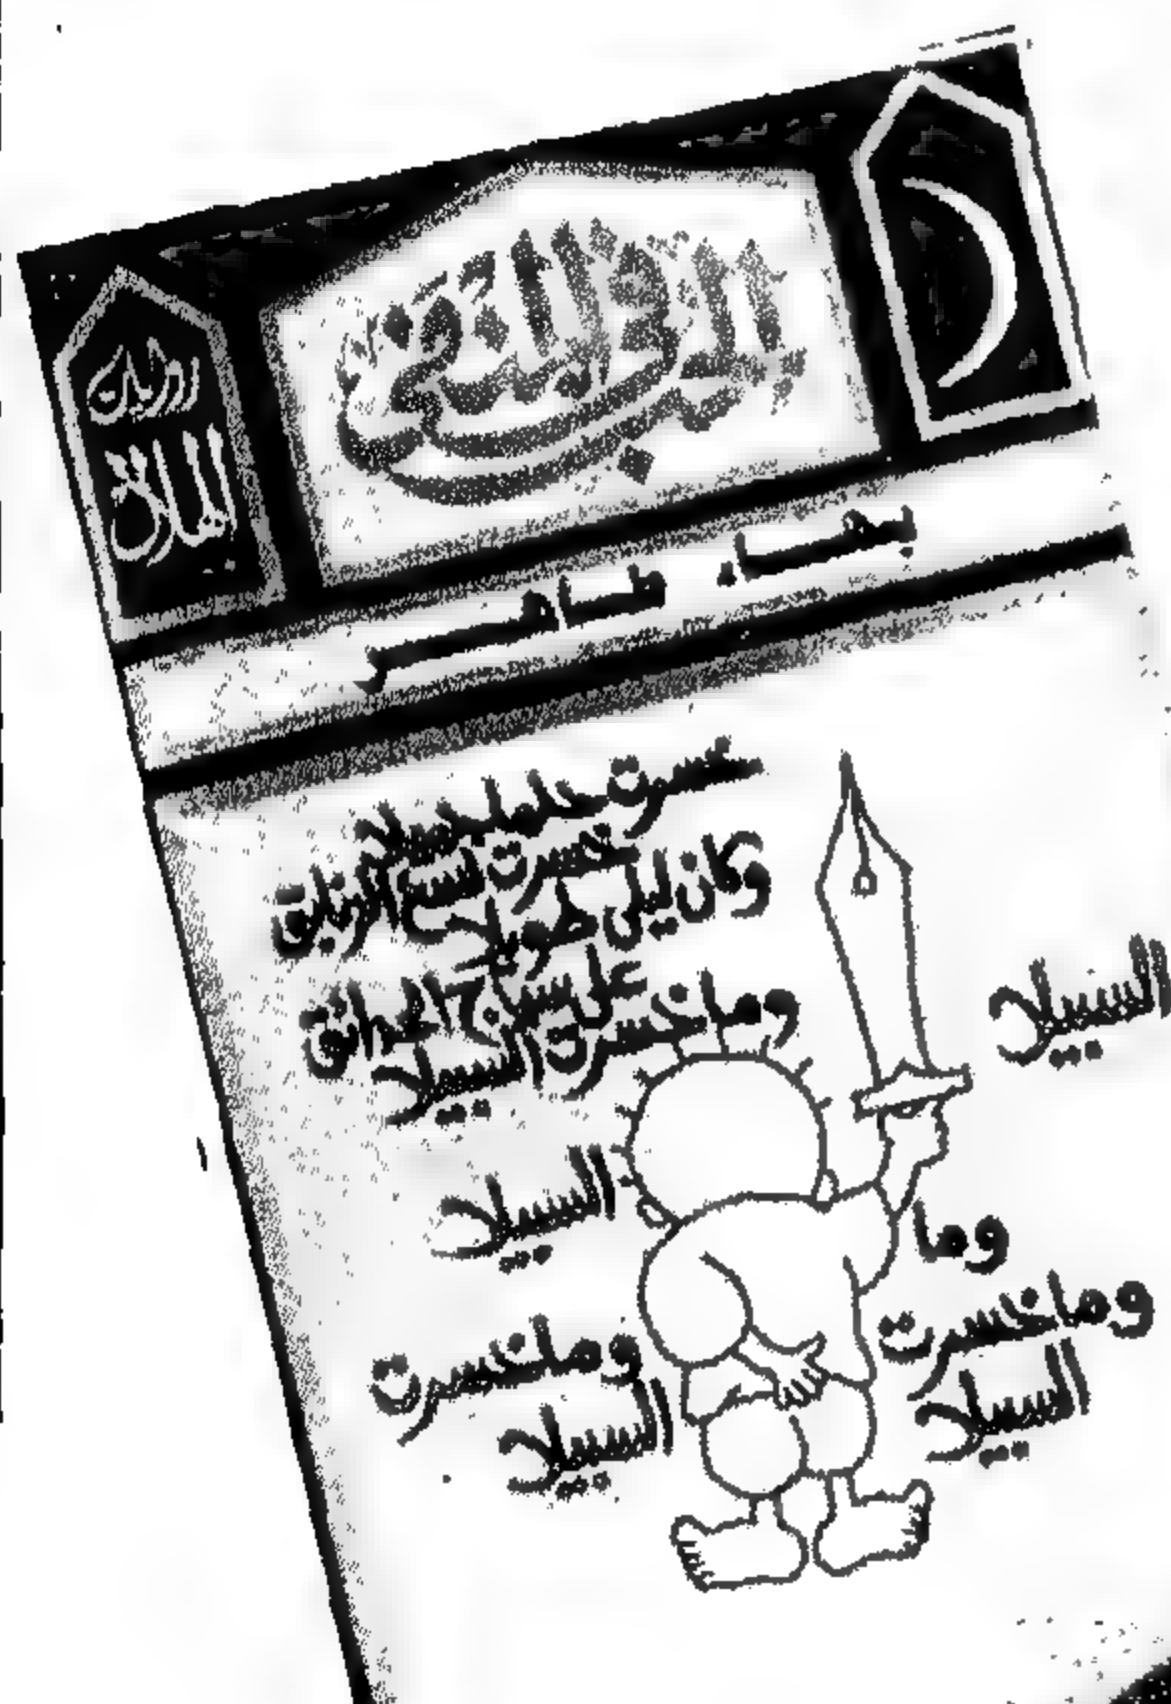 روايات
الهلال
الحب في المنفى
بهاء طاهر
خسرت حلما جميلا
خسرت لسع الزنابق
وكان ليلي طويلا
على سياج الحدائق
وما خسرت السبيلا
السبيلا
السبيلا
وما
وما خسرت
السبيلا
وما خسرت
السبيلا